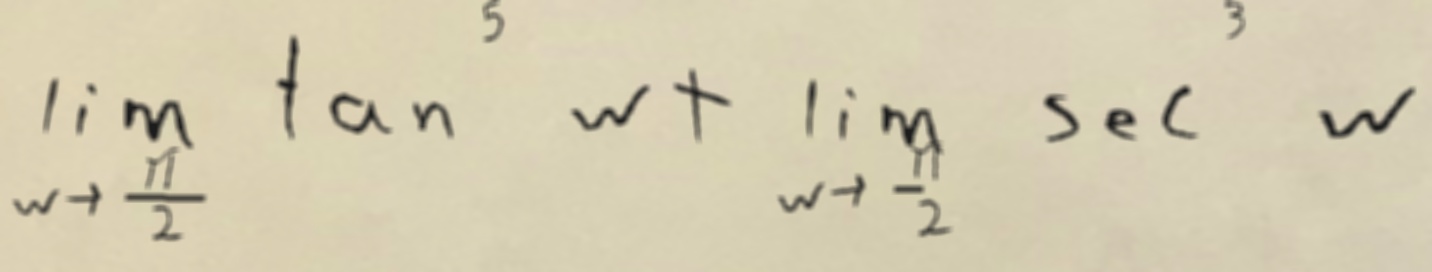 \lim_{w \to \frac{\pi}{2}} \tan^5 w + \lim_{w \to \frac{\pi}{2}} \sec^3 w